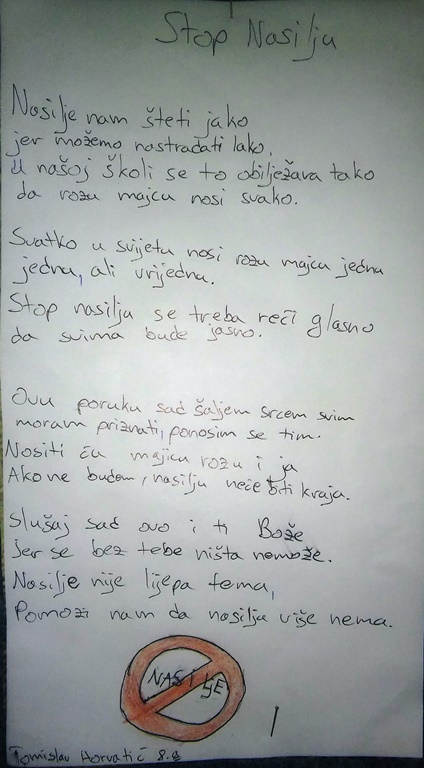 Stop Nasilju
Nasilje nam šteti jako
jer možemo nastradati lako,
u našoj školi se to obilježava tako
da rozu majcu nosi svako.
Svatko u svijetu nosi rozu majcu jednu
jednu, ali vrijednu.
Stop nasilju se treba reći glasno
da svima bude jasno.
Ovu poruku sad šaljem srcem svim
moram priznati, ponosim se tim.
Nositi ću majicu rozu i ja
Ako ne budem, nasilju neće biti kraja.
Slušaj sad ovo i ti Bože
Jer se bez tebe ništa nemože.
Nasilje nije lijepa tema,
Pomozi nam da nasilja više nema.
NASILJE
Tomislav Horvatić 8.a